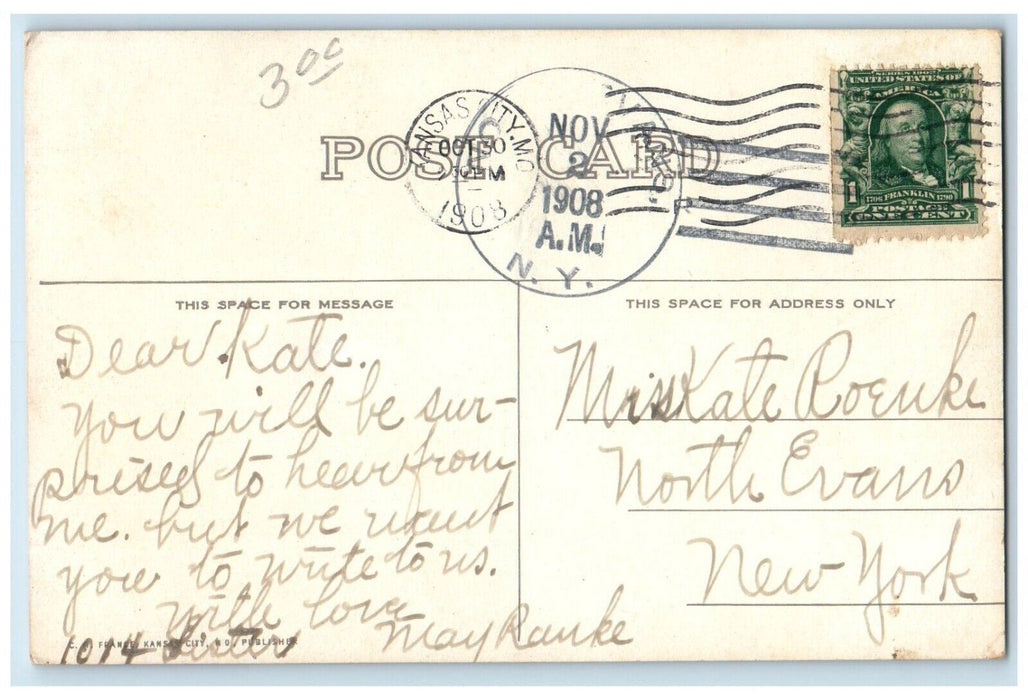 3 00
POST CARD
KANSAS CITY, MO
OCT 30
PM
1908
NOV
2
1908
A.M.
N.Y.
SERIES 1902
UNITED STATES OF
AMERICA
1 1706 FRANKLIN 1790 1
POSTAGE
ONE CENT
THIS SPACE FOR MESSAGE
Dear Kate.
you will be sur-
prised to hear from
me. but we want
you to write to us.
with love
1014 May Ranke
KANSAS CITY, MO., PUBLISHER
THIS SPACE FOR ADDRESS ONLY
Miss Kate Roenke
North Evans
New-York